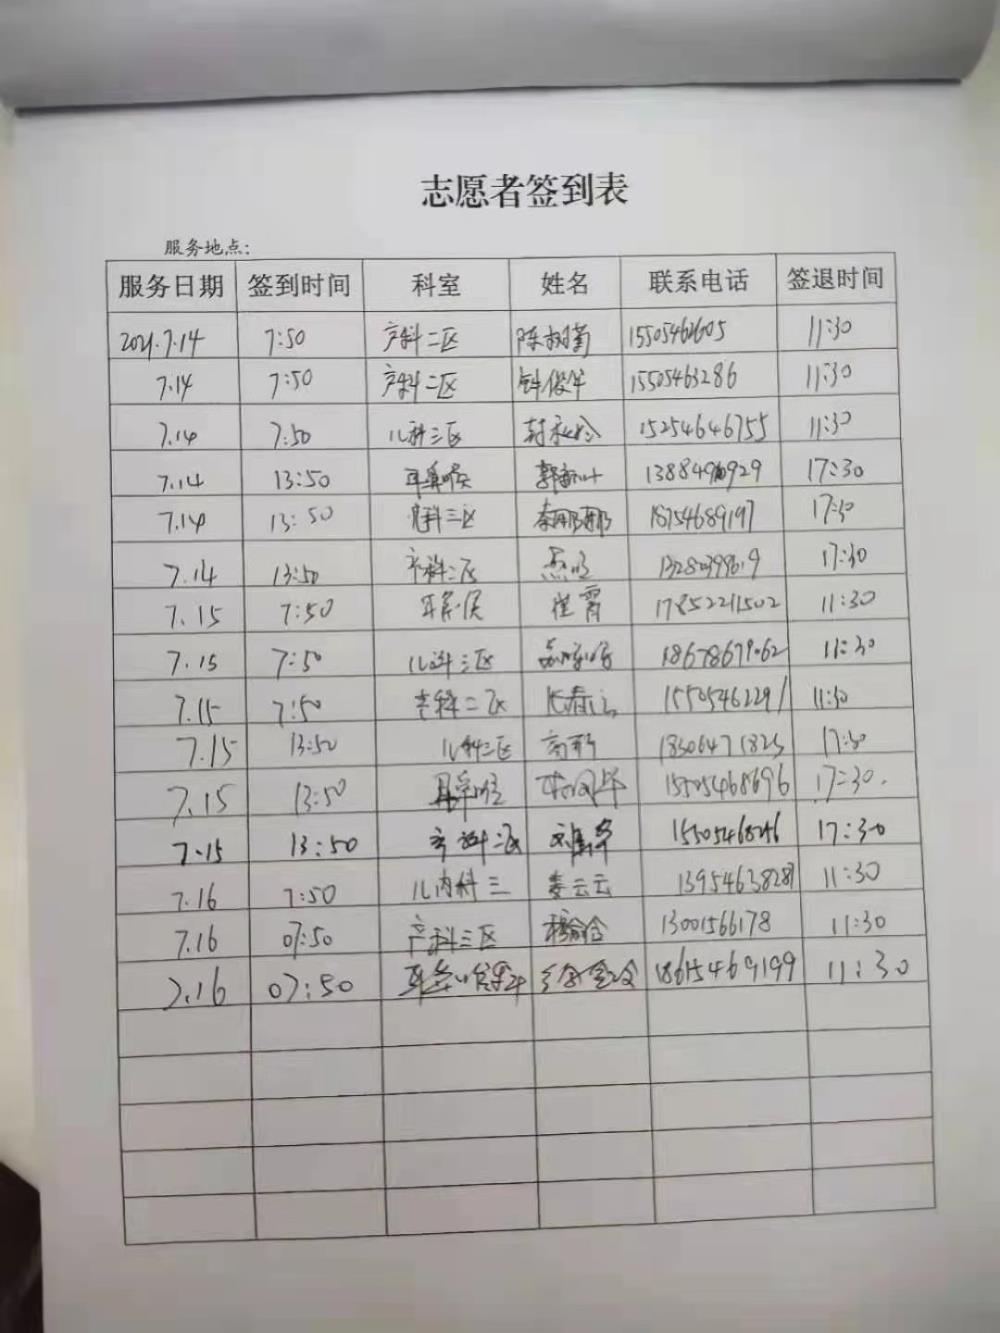 志愿者签到表
服务地点:
服务日期 签到时间 科室 姓名 联系电话 签退时间
2021.7.14 7:50 产科二区 陈树菊 15505462605 11:30
7.14 7:50 产科二区 15505463286 11:30
7.14 7:50 儿科三区 15254646755 11:30
7.14 13:50 耳鼻喉 17:30
7.14 13:50 三区 18754689197 17:30
7.14 13:50 产科二区 17:30
7.15 7:50 崔霄 17852211502 11:30
7.15 7:50 儿科三区 18678679062 11:30
7.15 7:50 产科二区 15505462291 11:30
7.15 13:50 儿科三区 高彤 18306471823 17:30
7.15 13:50 耳鼻喉 15505468696 17:30.
7.15 13:50 产科二区 17:30
7.16 7:50 儿内科三 娄云云 13954638287 11:30
7.16 07:50 产科三区 13001566178 11:30
7.16 07:50 18615469199 11:30